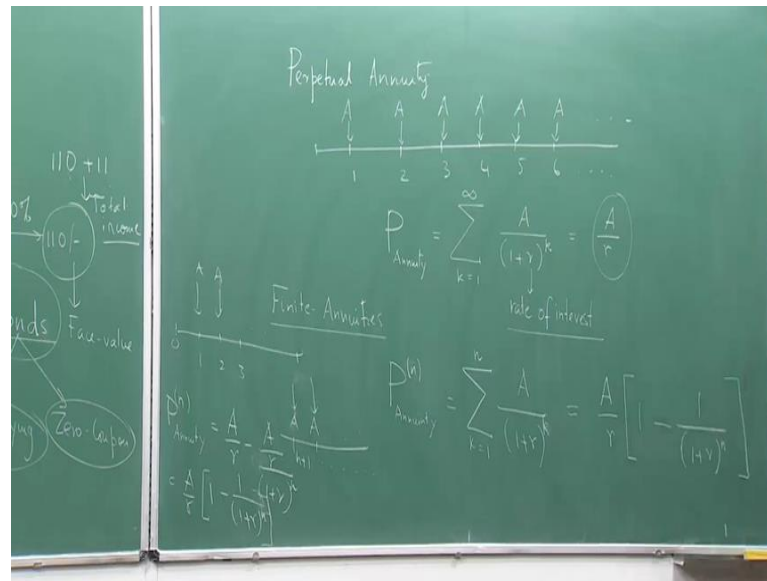 110 + 11
Total
income
0%
110/-
Face-value
nds
ying
Zero-Coupon
Perpetual Annuity
A A A A A A ....
1 2 3 4 5 6 ....
P_Annuity = ∑_{k=1}^{∞} A/(1+r)^k = A/r
rate of interest
A A
Finite-Annuities
0 1 2 3
A A
n+1 ......
P^(n)_Annuity = A/r - A/r/(1+r)^n
= A/r [1 - 1/(1+r)^n]
P^(n)_Annuity = ∑_{k=1}^{n} A/(1+r)^k = A/r [1 - 1/(1+r)^n]